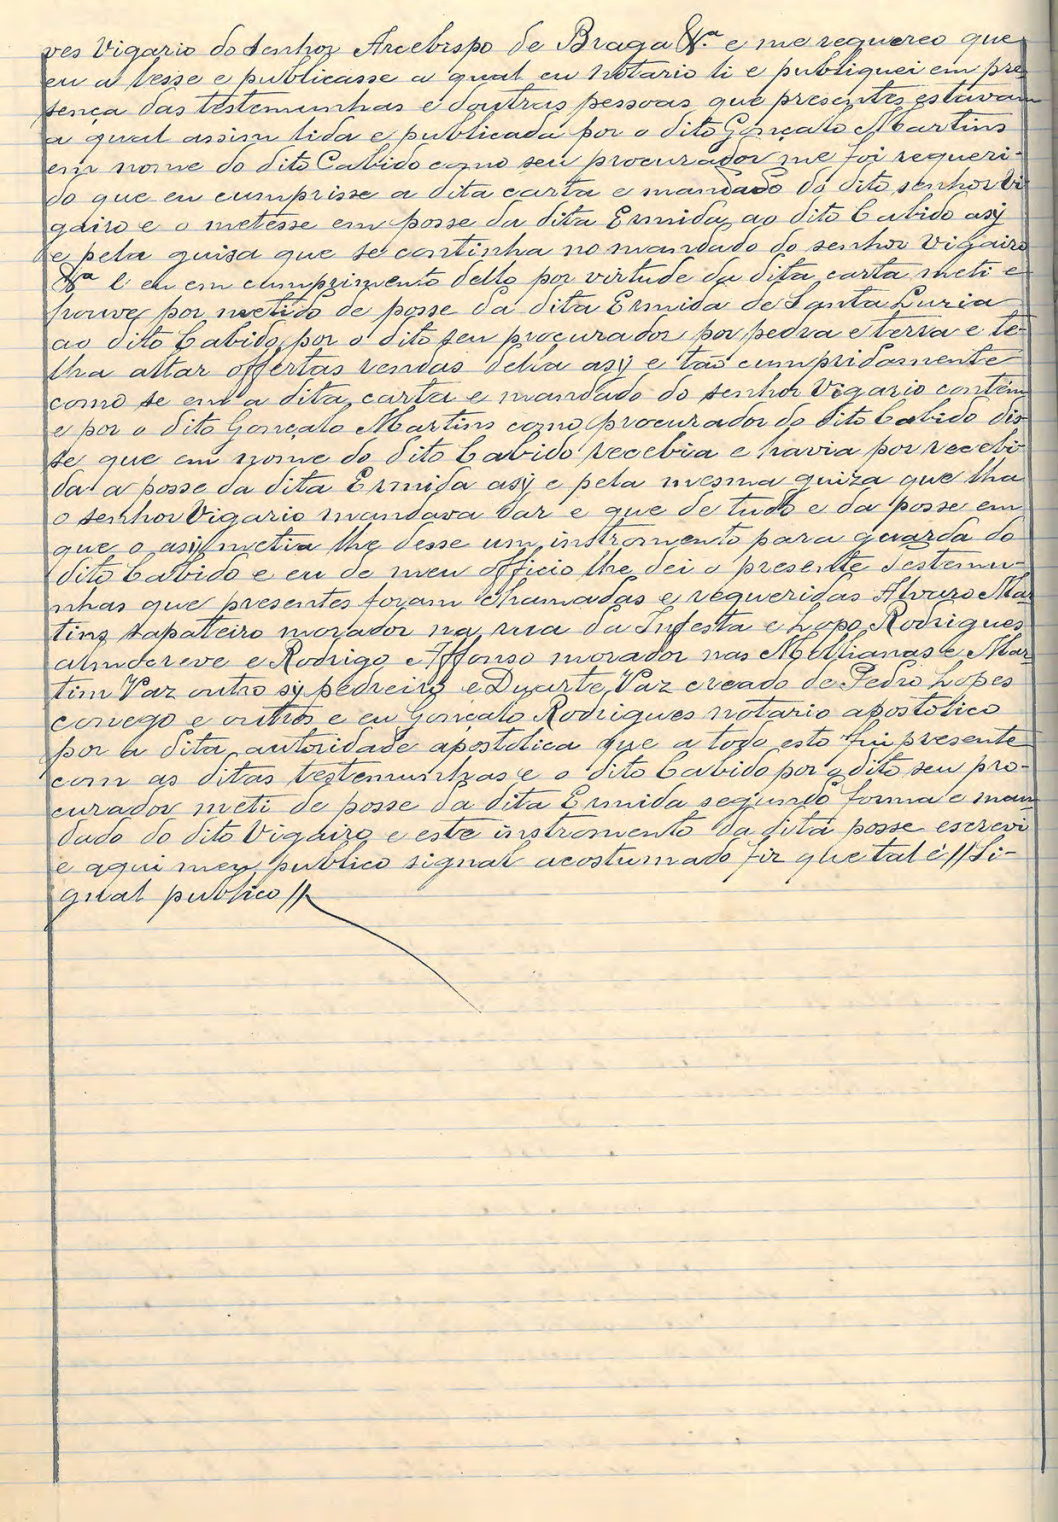 ves Vigario do Senhor Arcebispo de Braga &.ª e me requereo que
eu a lesse e publicasse a qual eu Notario li e publiquei em pre-
sença das testemunhas e doutras pessoas que presentes estavam
a qual assim lida e publicada por o dito Gonçalo Martins
em nome do dito Cabido como seu procurador me foi requeri-
do que eu cumprisse a dita carta e mandado do dito senhor Vi
gairo e o metesse em posse da dita Ermida ao dito Cabido asy
e pela guisa que se continha no mandado do senhor Vigairo
&ª E eu em cumprimento dello por virtude da dita carta meti e
houve por metido de posse da dita Ermida de Santa Luzia
ao dito Cabido por o dito seu procurador por pedra e terra e te-
lha altar offertas rendas della asy e tão cumpridamente
como se em a dita carta e mandado do senhor Vigario contem
e por o dito Gonçalo Martins como procurador do dito Cabido dis-
se que em nome do dito Cabido recebia e havia por recebi-
da a posse da dita Ermida asy e pela mesma guiza que lha
o senhor Vigario mandava dar e que de tudo e da posse em
que o asy metia lhe desse um instromento para guarda do
dito Cabido e eu de meu officio lhe dei o presente Testemu-
nhas que presentes foram chamadas e requeridas Alvaro Mar
tins sapateiro morador na rua da Infesta e Lopo Rodrigues
almocreve e Rodrigo Affonso morador nas Mollianas e Mar-
tim Vaz outro sy pedreiro e Duarte Vaz creado de Pedro Lopes
conego e outros e eu Gonçalo Rodrigues notario apostolico
por a dita autoridade apostolica que a todo esto fui presente
com as ditas testemunhas e o dito Cabido por o dito seu pro-
curador meti de posse da dita Ermida segundo forma e man-
dado do dito Vigairo e este instromento da dita posse escrevi
e aqui meu publico signal acostumado fiz que tal é // Si-
gnal publico //